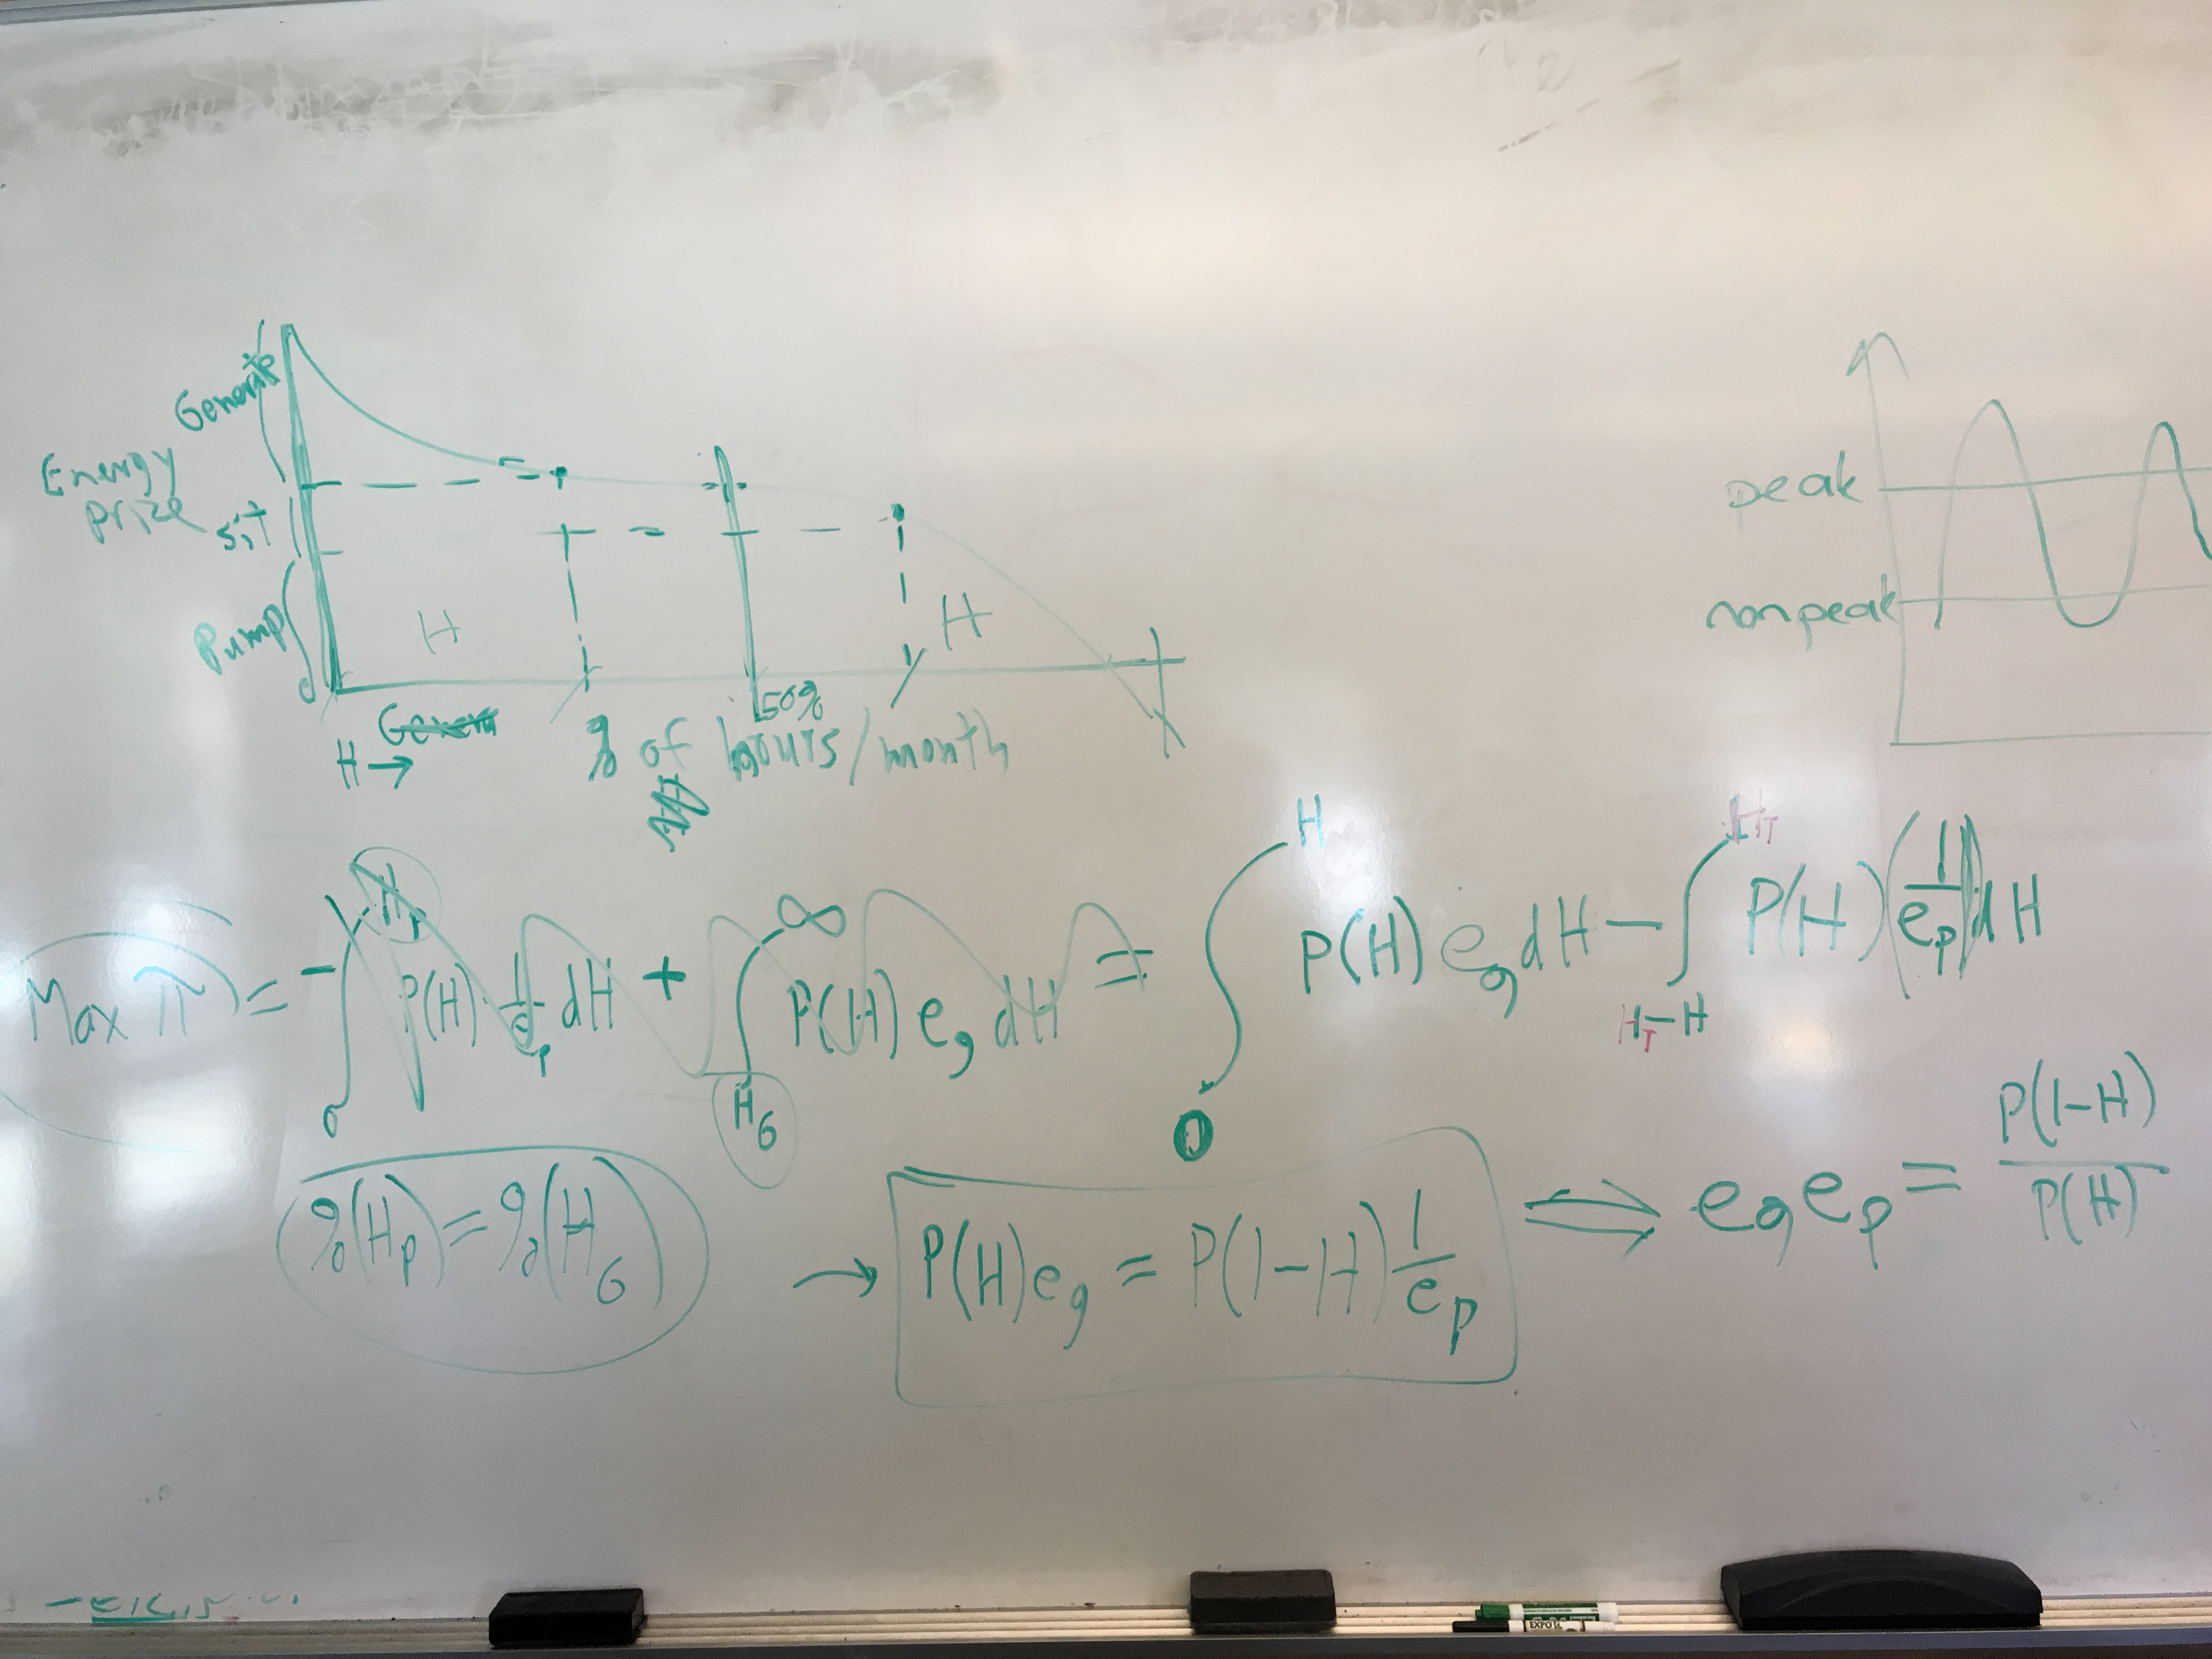 Generate
Energy
prize
sit
Pump
H
H
50%
H →
% of hours/month
peak
nonpeak
Max π = - ∫₀^Hp P(H) · 1/ep dH + ∫_HG^∞ P(H) eg dH = ∫₀^H P(H) eg dH - ∫_HT-H^HT P(H) (1/ep) dH
%(Hp) = %(HG)
→ P(H) eg = P(1-H) 1/ep ⟹ eg ep = P(1-H)/P(H)
EXPO